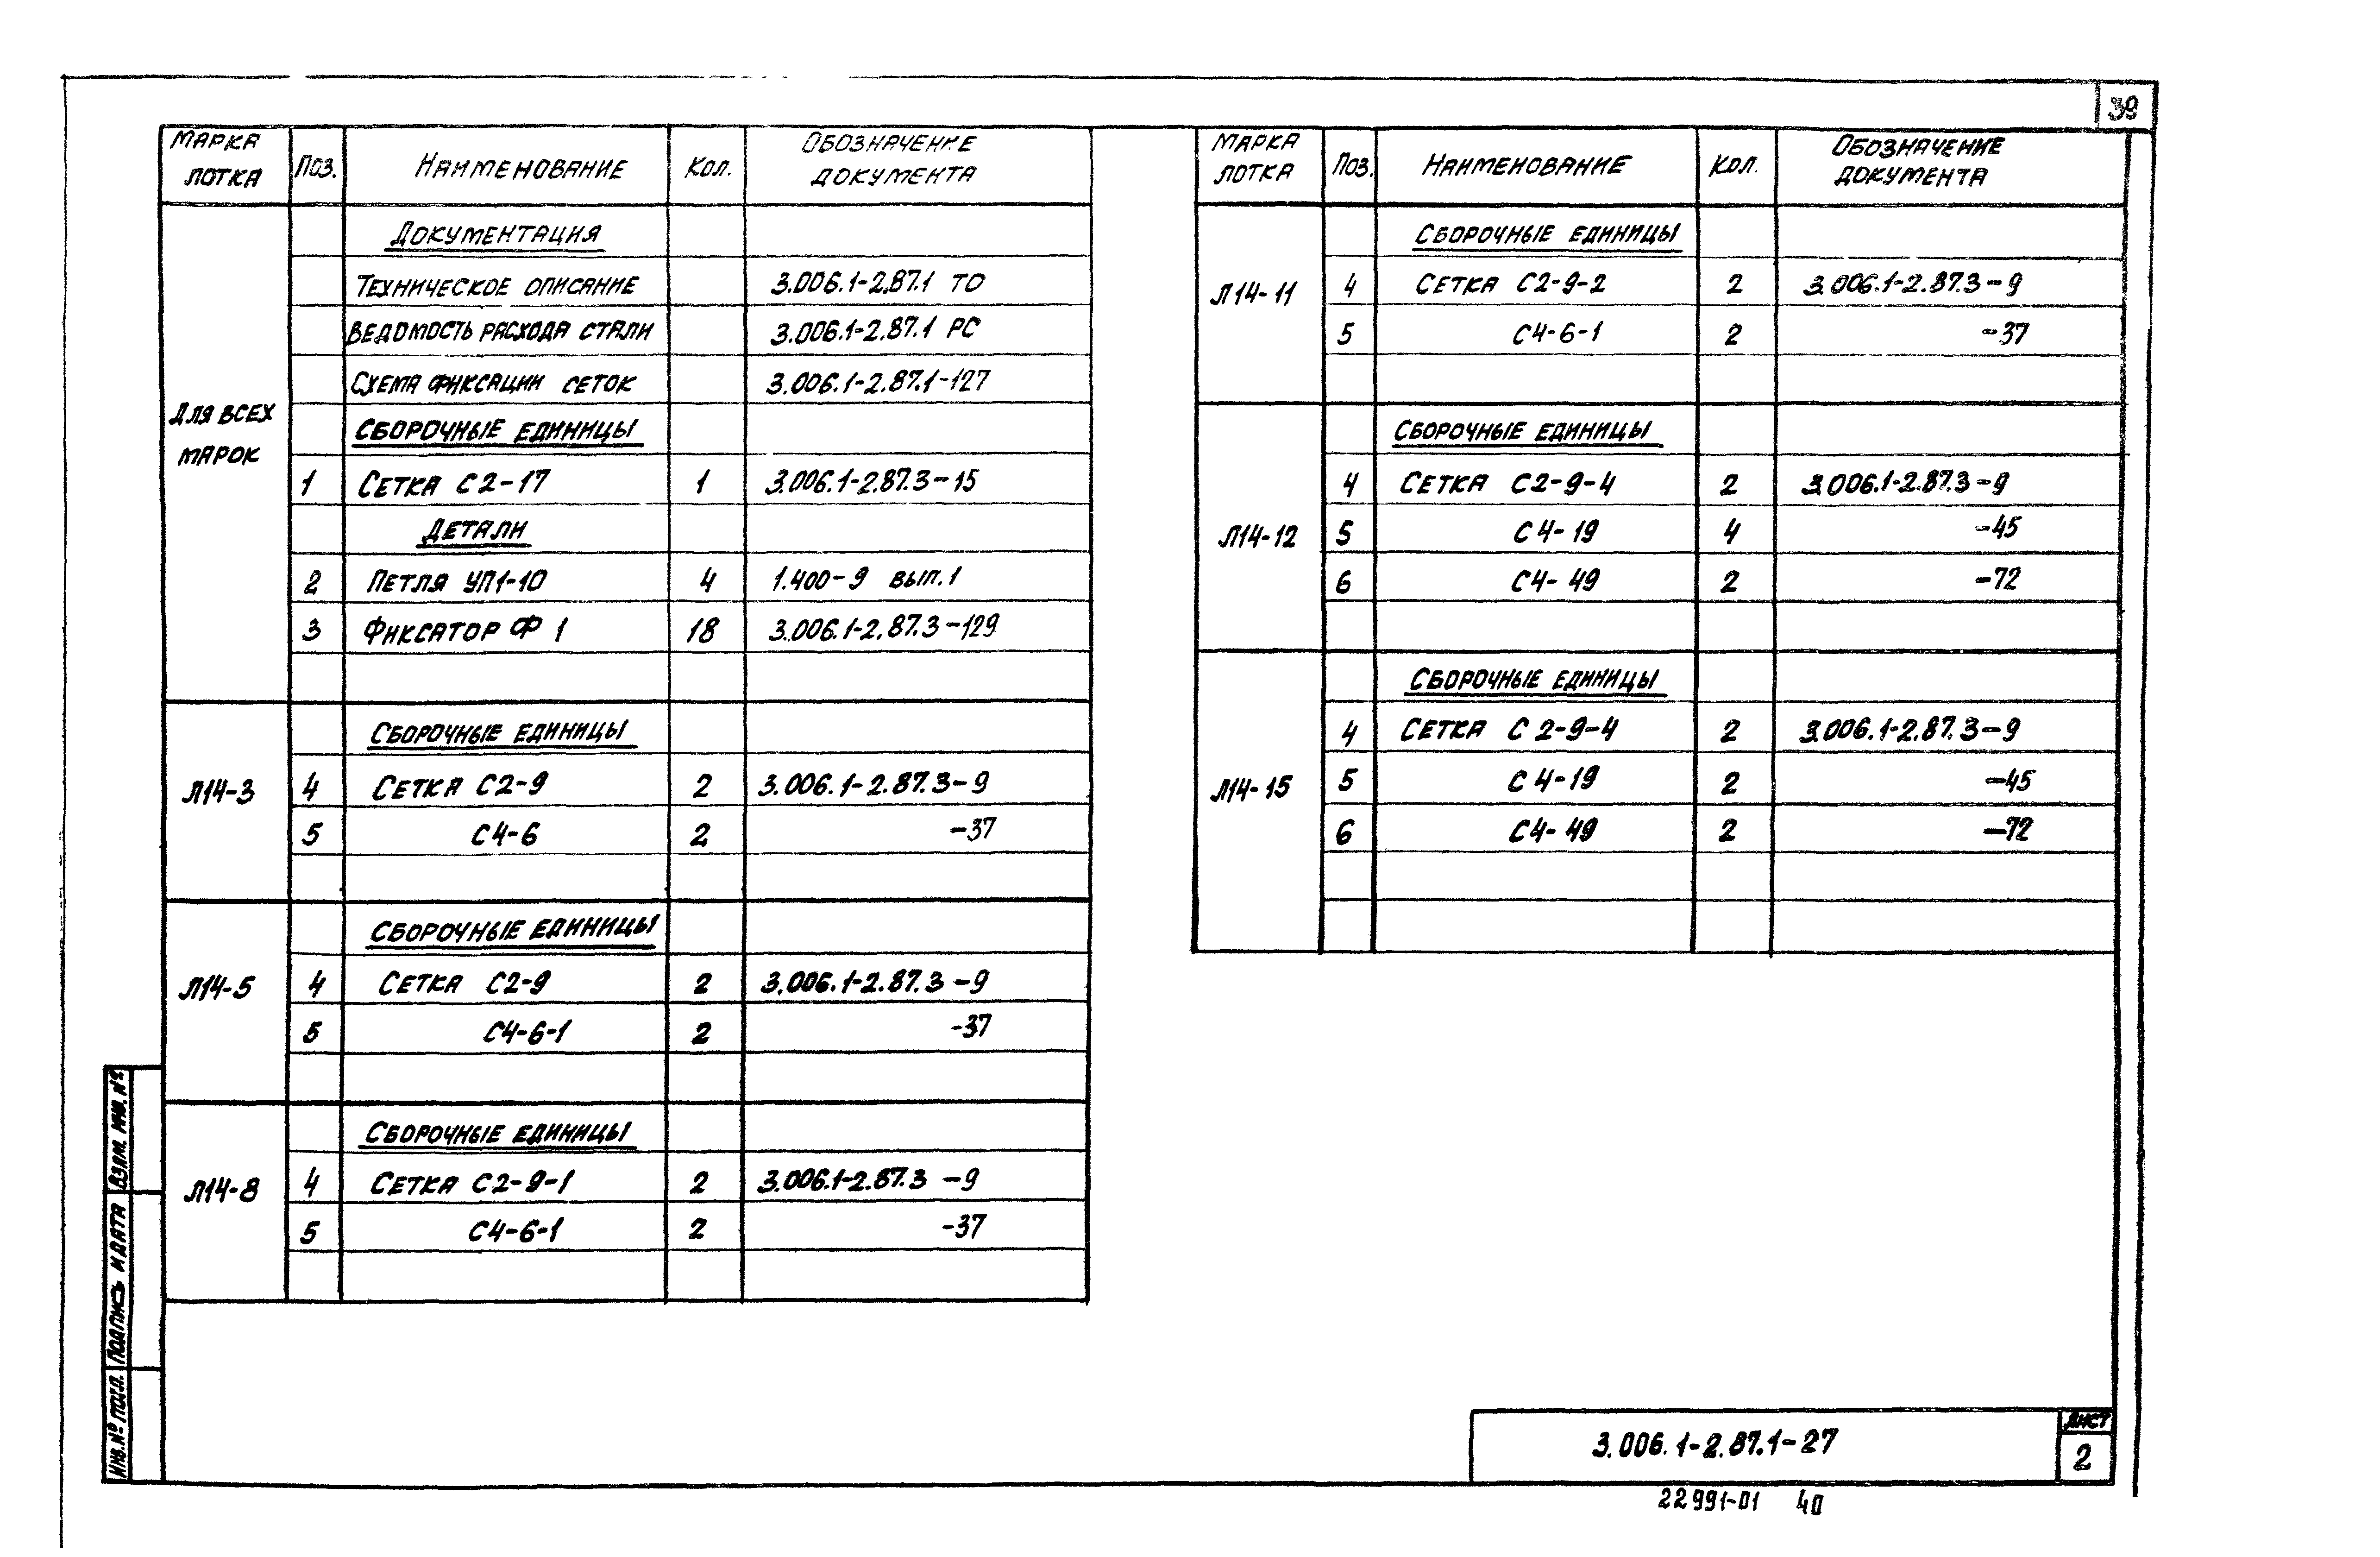 39
Марка лотка Поз. Наименование Кол. Обозначение документа
Документация
Техническое описание 3.006.1-2.87.1 ТО
Ведомость расхода стали 3.006.1-2.87.1 РС
Схема фиксации сеток 3.006.1-2.87.1-127
Для всех марок
Сборочные единицы
1 Сетка С2-17 1 3.006.1-2.87.3-15
Детали
2 Петля УП1-10 4 1.400-9 вып.1
3 Фиксатор Ф 1 18 3.006.1-2.87.3-129
Л14-3
Сборочные единицы
4 Сетка С2-9 2 3.006.1-2.87.3-9
5 С4-6 2 -37
Л14-5
Сборочные единицы
4 Сетка С2-9 2 3.006.1-2.87.3-9
5 С4-6-1 2 -37
Л14-8
Сборочные единицы
4 Сетка С2-9-1 2 3.006.1-2.87.3-9
5 С4-6-1 2 -37
Марка лотка Поз. Наименование Кол. Обозначение документа
Л14-11
Сборочные единицы
4 Сетка С2-9-2 2 3.006.1-2.87.3-9
5 С4-6-1 2 -37
Л14-12
Сборочные единицы
4 Сетка С2-9-4 2 3.006.1-2.87.3-9
5 С4-19 4 -45
6 С4-49 2 -72
Л14-15
Сборочные единицы
4 Сетка С2-9-4 2 3.006.1-2.87.3-9
5 С4-19 2 -45
6 С4-49 2 -72
Инв.№ подл. Подпись и дата Взам. инв. №
3.006.1-2.87.1-27
Лист
2
22991-01 40